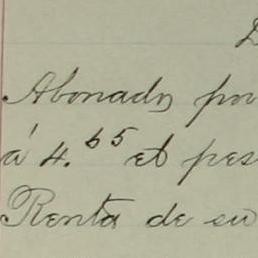 D
Abonado por
á 4.65 el pes
Renta de su